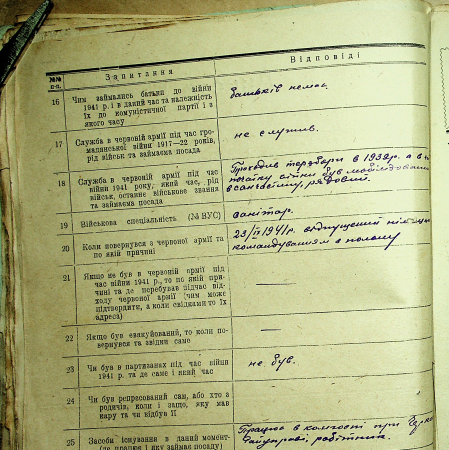 №№ п-п.
Запитання
Відповіді
16
Чим займались батьки до війни
1941 р. і в даний час та належність
їх до комуністичної партії і з
якого часу
Батьків немає.
17
Служба в червоній армії під час гро-
мадянської війни 1917—22 років,
рід військ та займаєма посада
не служив.
18
Служба в червоній армії під час
війни 1941 року, який час, рід
військ, останнє військове звання
та займаєма посада
Проходив терзбори в 1932р. а в
війни був мобілізований
в санчастину, рядовий.
19
Військова спеціальність (№ ВУС)
санітар.
20
Коли повернувся з червоної армії та
по якій причині
23/ІХ 1941р. відпущений німецьким
командуванням з полону
21
Якщо не був в червоній армії під
час війни 1941 р., то по якій при-
чині та де перебував підчас відхо-
ду червоної армії (чим може
підтвердити, а коли свідками то їх
адреса)
22
Якщо був евакуйований, то коли по-
вернувся та звідки саме
23
Чи був в партизанах під час війни
1941 р. та де саме і який час
не був.
24
Чи був репресований сам, або хто з
родичів, коли і защо, яку мав
кару та чи відбув її
25
Засоби існування в даний момент
(де працює і яку займає посаду)
Працює в при
Райуправі, робітник.